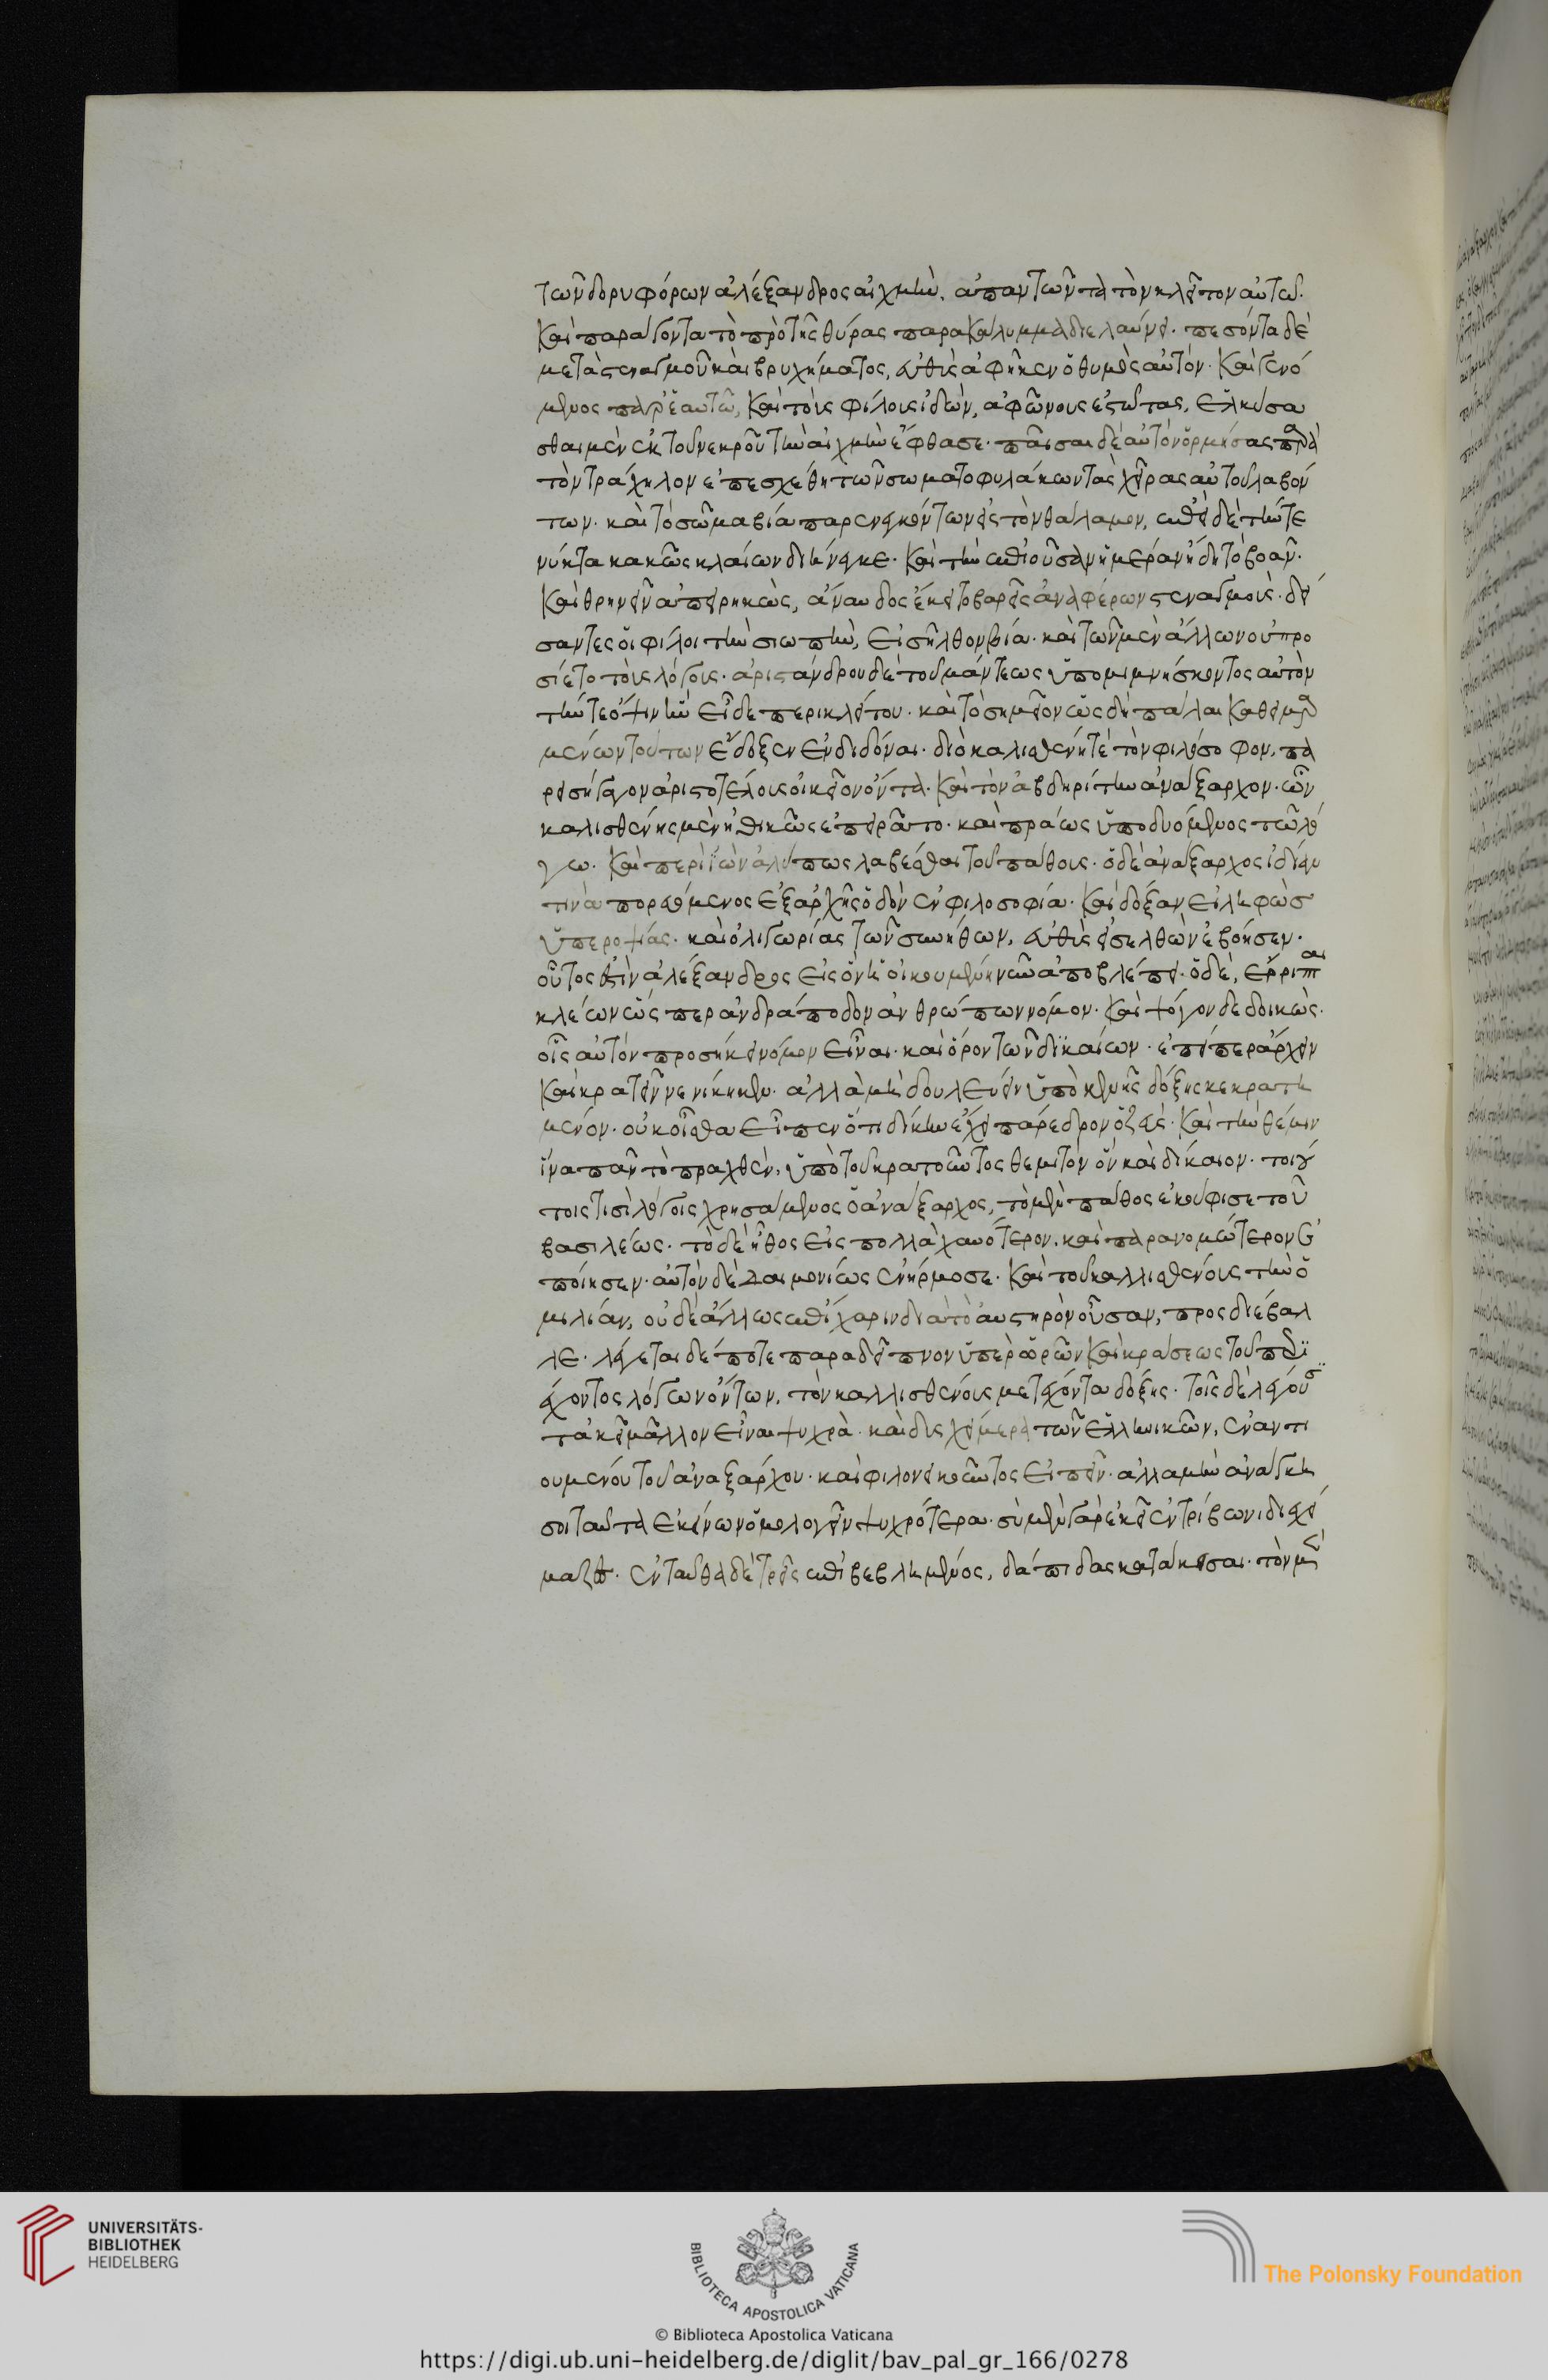 τῶν δορυφόρων ἀλέξανδρος αἰχμὴν, ἀπαντῶντα τὸν κλεῖτον αὐτῶ.
καὶ παράγοντα τὸ πρὸ τῆς θύρας παρακάλυμμα διελαύνει. πεσόντα δὲ
μετὰ στεναγμοῦ καὶ βρυχήματος, εὐθὺς ἀφῆκεν ὁ θυμὸς αὐτόν. καὶ γενό
μενος παρ' ἑαυτῶ, καὶ τοὺς φίλους ἰδὼν, ἀφώνους ἑστῶτας, ἑλκύσα
σθαι μὲν ἐκ τοῦ νεκροῦ τὴν αἰχμὴν ἔφθασε. παῖσαι δὲ αὐτὸν ὁρμήσας παρὰ
τὸν τράχηλον ἐπεσχέθη τῶν σωματοφυλάκων τὰς χεῖρας αὐτοῦ λαβόν
των. καὶ τὸ σῶμα βία παρενεγκόντων εἰς τὸν θάλαμον, ἐπεὶ δὲ τήν τε
νύκτα κακῶς κλαίων διήνεγκε. καὶ τὴν ἐπιοῦσαν ἡμέραν ἤδη τὸ βοᾶν.
καὶ θρηνεῖν ἀπειρηκὼς, ἄναυδος ἔκειτο βαρεῖς ἀναφέρων στεναγμούς. δεί
σαντες οἱ φίλοι τὴν σιωπὴν, εἰσῆλθον βία. καὶ τῶν μὲν ἄλλων οὐ προ
σίετο τοὺς λόγους. ἀριστάνδρου δὲ τοῦ μάντεως ὑπομιμνήσκοντος αὐτὸν
τήν τε ὄψιν ἣν εἶδε περὶ κλείτου. καὶ τὸ σημεῖον ὡς δὴ πάλαι καθειμαρ
μένων τούτων ἔδοξεν ἐνδιδόναι. διὸ καλισθένητέ τὸν φιλόσοφον, πα
ρεισήγαγον ἀριστοτέλους οἰκεῖον ὄντα. καὶ τὸν ἀβδηρίτην ἀνάξαρχον. ὧν
καλισθένης μὲν ἠθικῶς ἐπειρᾶτο. καὶ πράως ὑποδυόμενος τῶ λό
γω. καὶ περιϊὼν ἀλύπως λαβέσθαι τοῦ πάθους. ὁ δὲ ἀνάξαρχος ἰδίαν
τινὰ πορευόμενος ἐξαρχῆς ὁδὸν ἐν φιλοσοφία. καὶ δόξαν εἰληφὼσ
ὑπεροψίας. καὶ ὀλιγωρίας τῶν συνήθων, εὐθὺς εἰσελθὼν ἐβόησεν.
οὗτος ἐστὶν ἀλέξανδρος εἰς ὃν ἡ οἰκουμένη νῦν ἀποβλέπει. ὁ δὲ, ἔρριπται
κλέων ὥσπερ ἀνδράποδον ἀνθρώπων νόμον. καὶ ψόγον δεδοικὼς.
οἷς αὐτὸν προσήκει νόμον εἶναι. καὶ ὅρον τῶν δικαίων. ἐπείπερ ἄρχειν
καὶ κρατεῖν νενίκηκεν. ἀλλὰ μὴ δουλεύειν ὑπὸ κενῆς δόξης κεκρατη
μένον. οὐκ οἶσθα εἶπεν ὅτι δίκην ἔχει πάρεδρον ὁ ζεὺς. καὶ τὴν θέμιν
ἵνα πᾶν τὸ πραχθὲν, ὑπὸ τοῦ κρατοῦντος θεμιτὸν ὂν καὶ δίκαιον. τοιού
τοις τισὶ λόγοις χρησάμενος ὁ ἀνάξαρχος, τὸ μὲν πάθος ἐκούφισε τοῦ
βασιλέως. τὸ δὲ ἦθος εἰς πολλὰ χαυνότερον. καὶ παρανομώτερον ἐ
ποίησεν. αὐτὸν δὲ δαιμονίως ἐνήρμοσε. καὶ τοῦ καλλισθένους τὴν ὁ
μιλίαν, οὐδὲ ἄλλως ἐπίχαριν διὰ τὸ αὐστηρὸν οὖσαν, προσδιέβαλ
λε. λέγεται δέ ποτε παρὰ δεῖπνον ὑπὲρ ὡρῶν καὶ κράσεως τοῦ περϊ
έχοντος λόγων ὄντων, τὸν καλλισθένους μετέχοντα δόξης. τοῖς δὲ λέγουσ
τἀκεῖ μᾶλλον εἶναι ψυχρὰ. καὶ δυσχείμερα τῶν ἑλληνικῶν, ἐναντι
ουμένου τοῦ ἀναξάρχου. καὶ φιλονεικοῦντος εἰπεῖν. ἀλλὰ μὴν ἀνάγκη
σοι ταῦτα ἐκείνων ὁμολογεῖν ψυχρότερα. σὺ μὲν γὰρ ἐκεῖ ἐν τρίβωνι διεχεί
μαζες. ἐνταῦθα δὲ τρεῖς ἐπιβεβλημένος, δάπιδας κατάκεισαι. τὸν μὲν
UNIVERSITÄTS-
BIBLIOTHEK
HEIDELBERG
BIBLIOTECA APOSTOLICA VATICANA
The Polonsky Foundation
© Biblioteca Apostolica Vaticana
https://digi.ub.uni-heidelberg.de/diglit/bav_pal_gr_166/0278